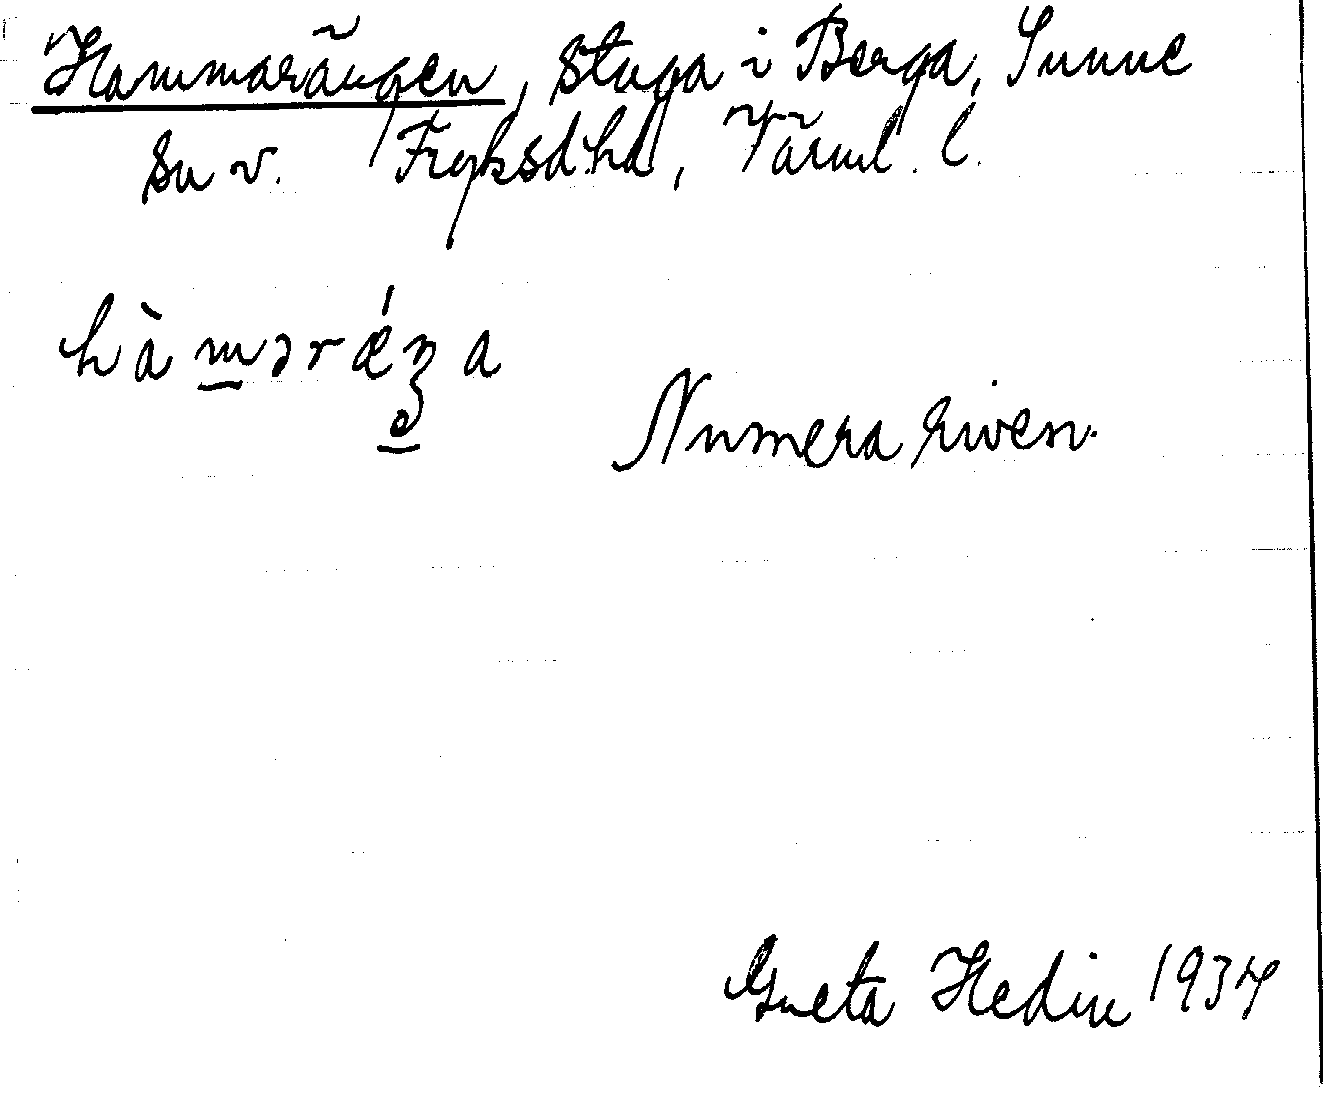 Hammarängen, stuga i Berga, Sunne
sn v. Fryksd. hd, Värml. l.
hàmәrǽŋa
Numera riven.
Greta Hedin 1934